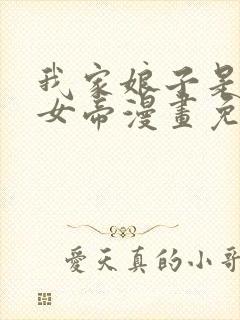 我家娘子是
女帝漫畫免
愛天真的小哥